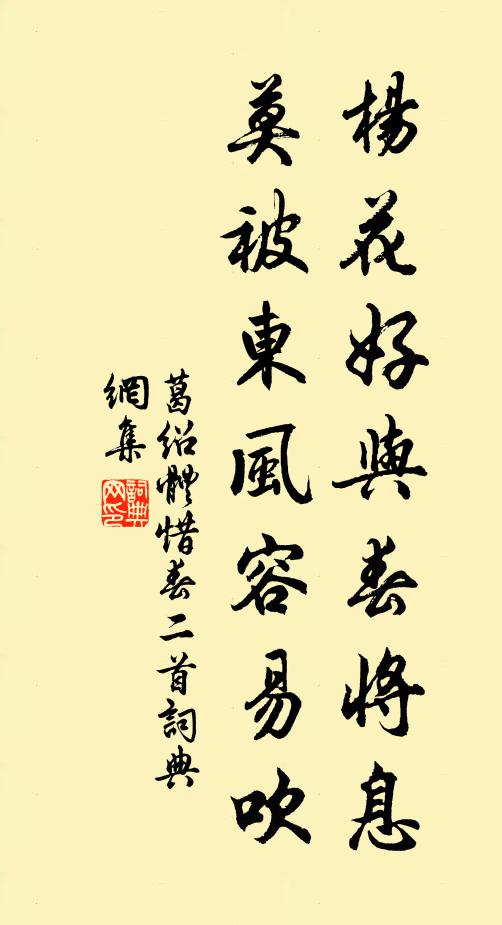 楊花好與春將息
莫被東風容易吹
葛紹體惜春二首詞典
網集
詞典
网印